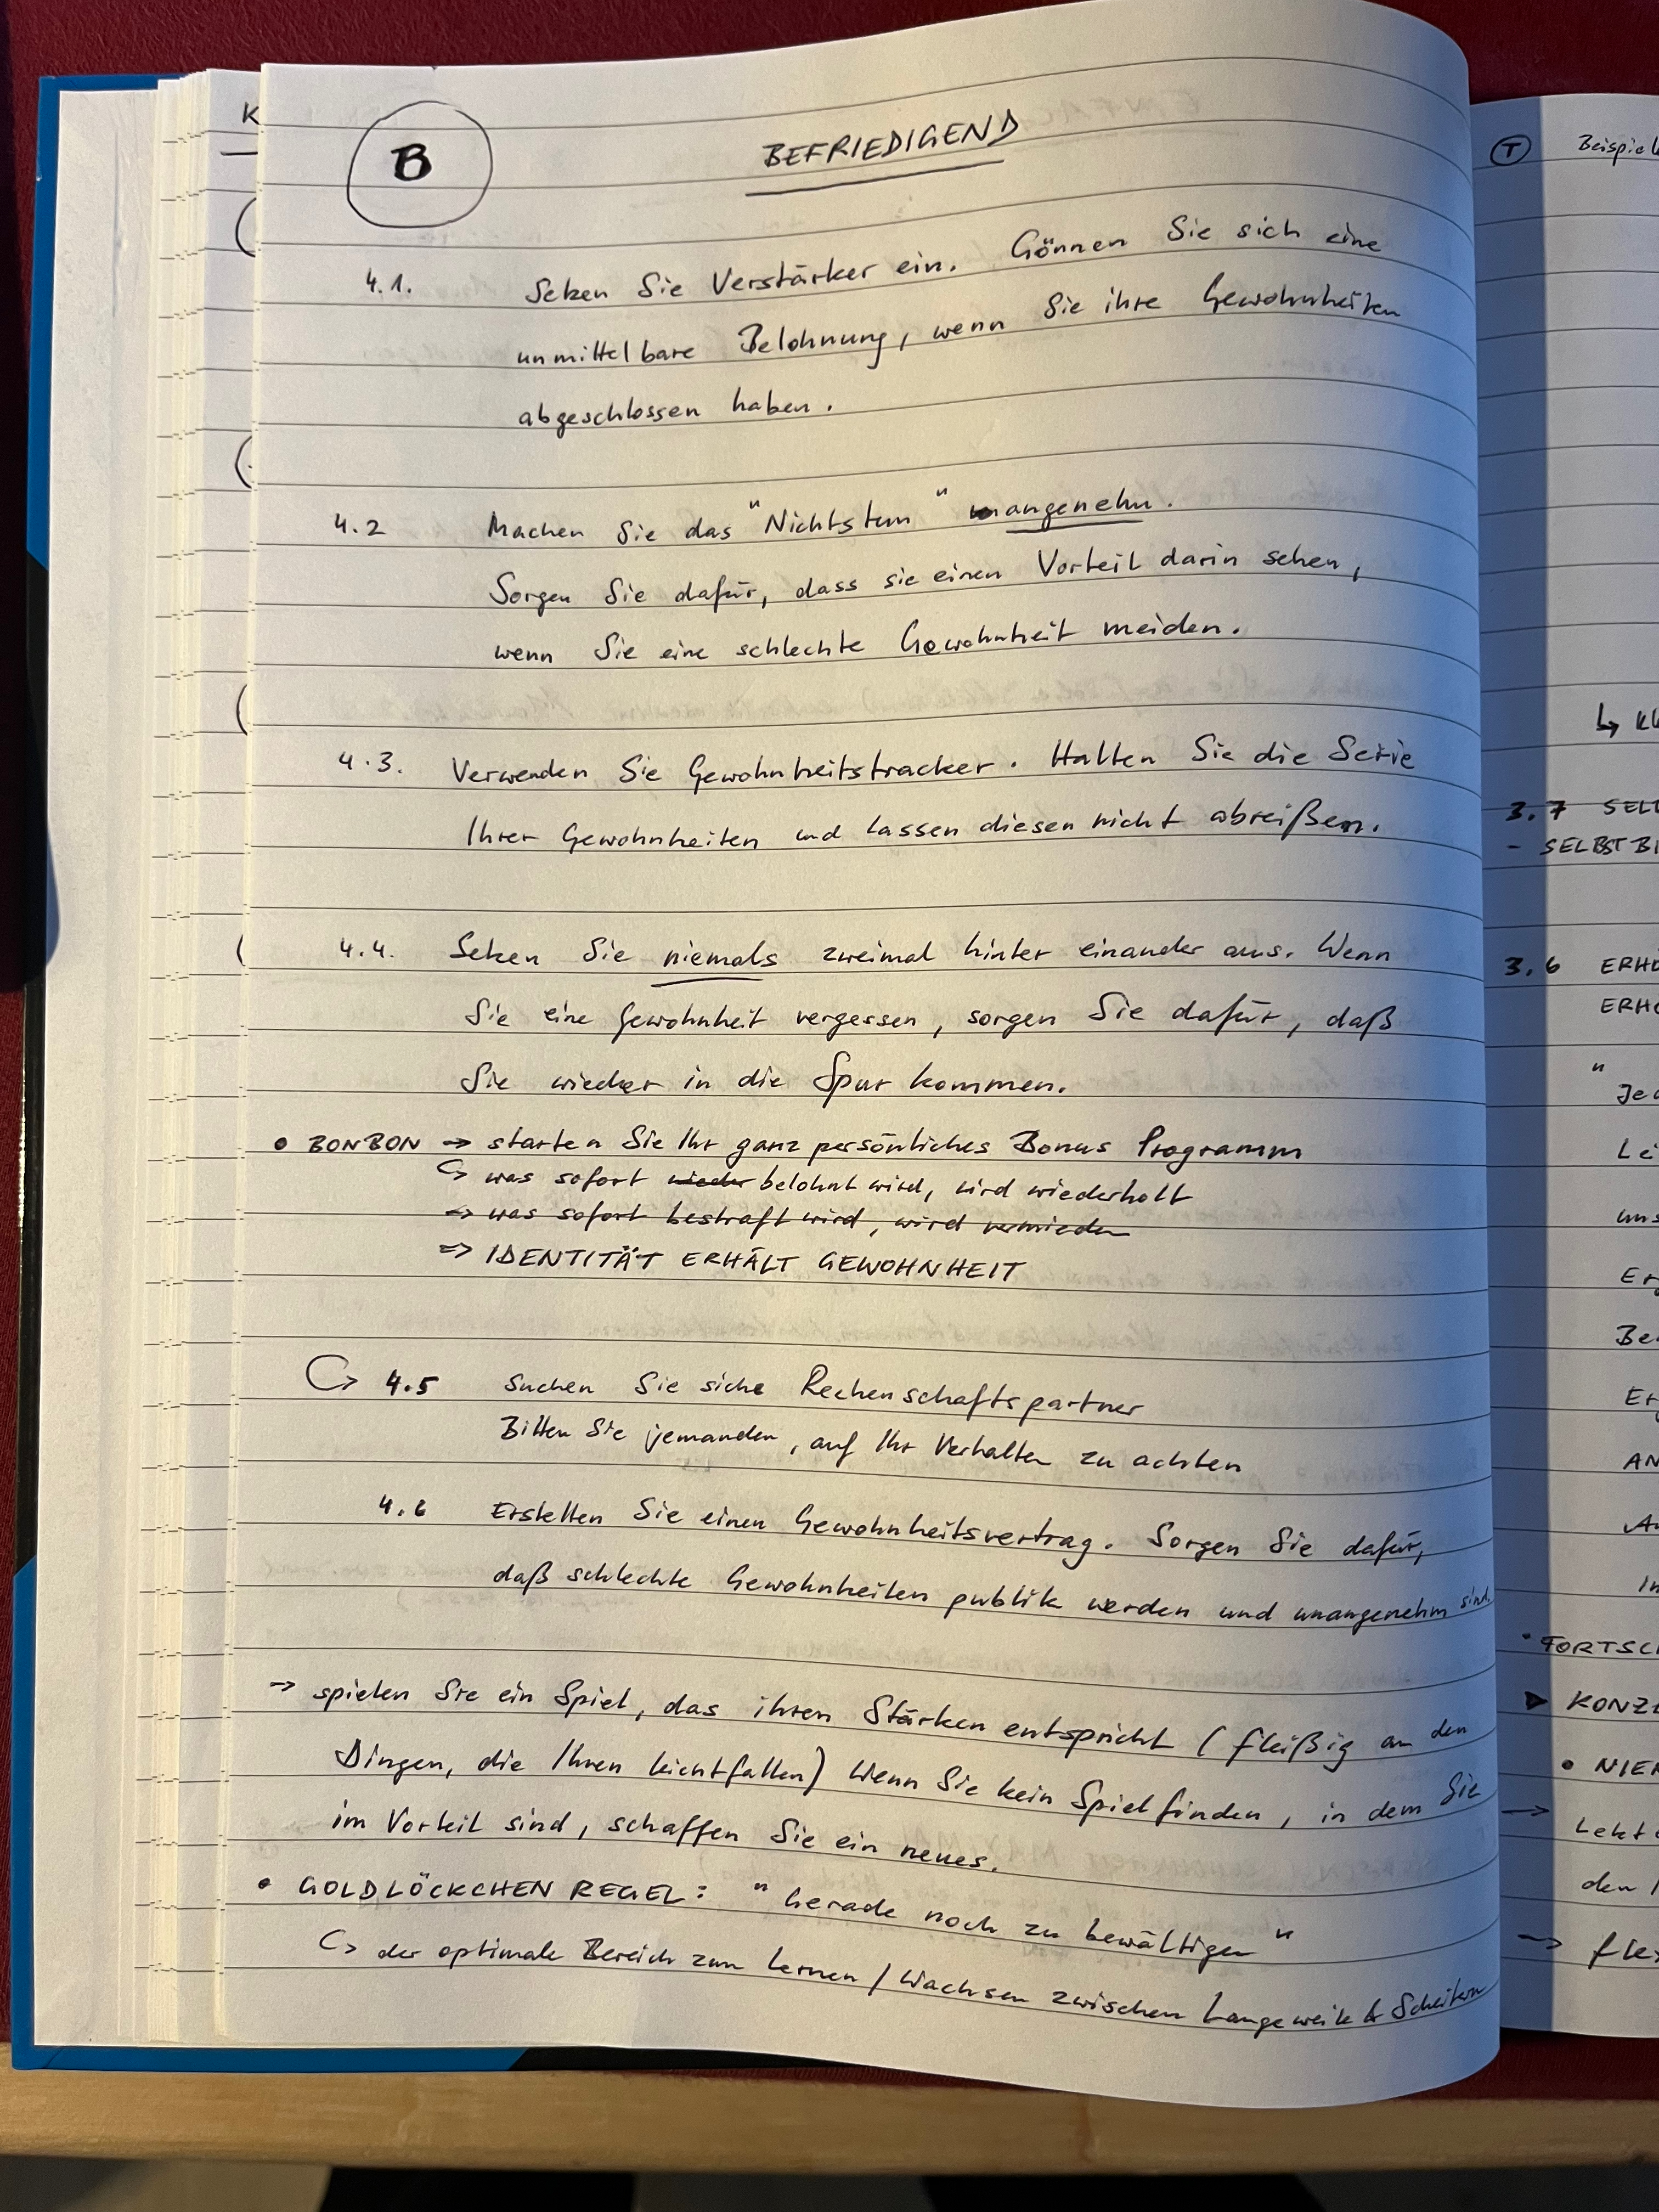 B
BEFRIEDIGEND
4.1. Setzen Sie Verstärker ein. Gönnen Sie sich eine
unmittelbare Belohnung, wenn Sie ihre Gewohnheiten
abgeschlossen haben.
4.2 Machen Sie das "Nichtstun" angenehm.
Sorgen Sie dafür, dass sie einen Vorteil darin sehen,
wenn Sie eine schlechte Gewohnheit meiden.
4.3. Verwenden Sie Gewohnheitstracker. Halten Sie die Serie
Ihrer Gewohnheiten und lassen diesen nicht abreißen.
4.4. Setzen Sie niemals zweimal hinter einander aus. Wenn
Sie eine Gewohnheit vergessen, sorgen Sie dafür, daß
Sie wieder in die Spur kommen.
• BONBON → starten Sie Ihr ganz persönliches Bonus Programm
↳ was sofort wieder belohnt wird, wird wiederholt
→ was sofort bestraft wird, wird vermieden
⇒ IDENTITÄT ERHÄLT GEWOHNHEIT
↳ 4.5 Suchen Sie siche Rechenschaftspartner
Bitten Sie jemanden, auf Ihr Verhalten zu achten
4.6 Erstellen Sie einen Gewohnheitsvertrag. Sorgen Sie dafür,
daß schlechte Gewohnheiten publik werden und unangenehm sind.
→ spielen Sie ein Spiel, das ihren Stärken entspricht (fleißig an den
Dingen, die Ihnen leichtfallen) Wenn Sie kein Spiel finden, in dem Sie
im Vorteil sind, schaffen Sie ein neues.
• GOLDLÖCKCHEN REGEL: "Gerade noch zu bewältigen"
↳ der optimale Bereich zum Lernen / Wachsen zwischen Langeweile & Scheitern
K
T Beispiel
↳
3.7
- SELBSTBI
3.6 ERHÖ
"
• FORTSC
▶ KONZ
• NIE
→
den
→